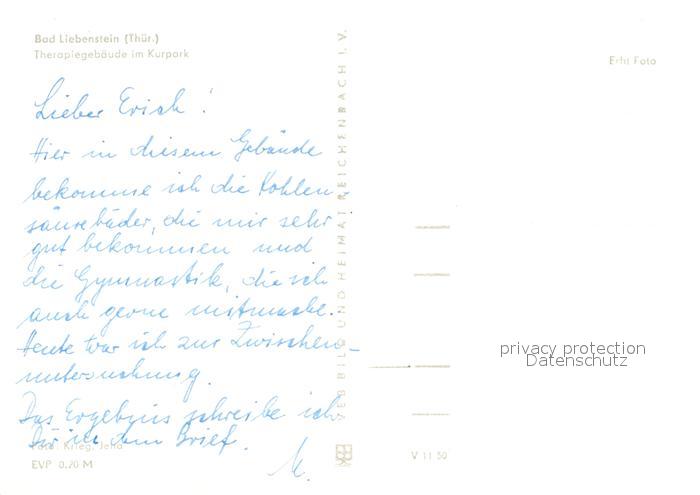 Bad Liebenstein (Thür.)
Therapiegebäude im Kurpark
Erht Foto
Lieber Erich!
Hier in diesem Gebäude
bekomme ich die Kohlen-
säurebäder, die mir sehr
gut bekommen und
die Gymnastik, die ich
auch gerne mitmache.
Heute war ich zur Zwischen-
untersuchung.
Das Ergebnis schreibe ich
Dir in dem Brief.
M.
Foto: Krieg, Jena
EVP 0.20 M
VEB BILD UND HEIMAT REICHENBACH I. V.
V 11 50
privacy protection
Datenschutz